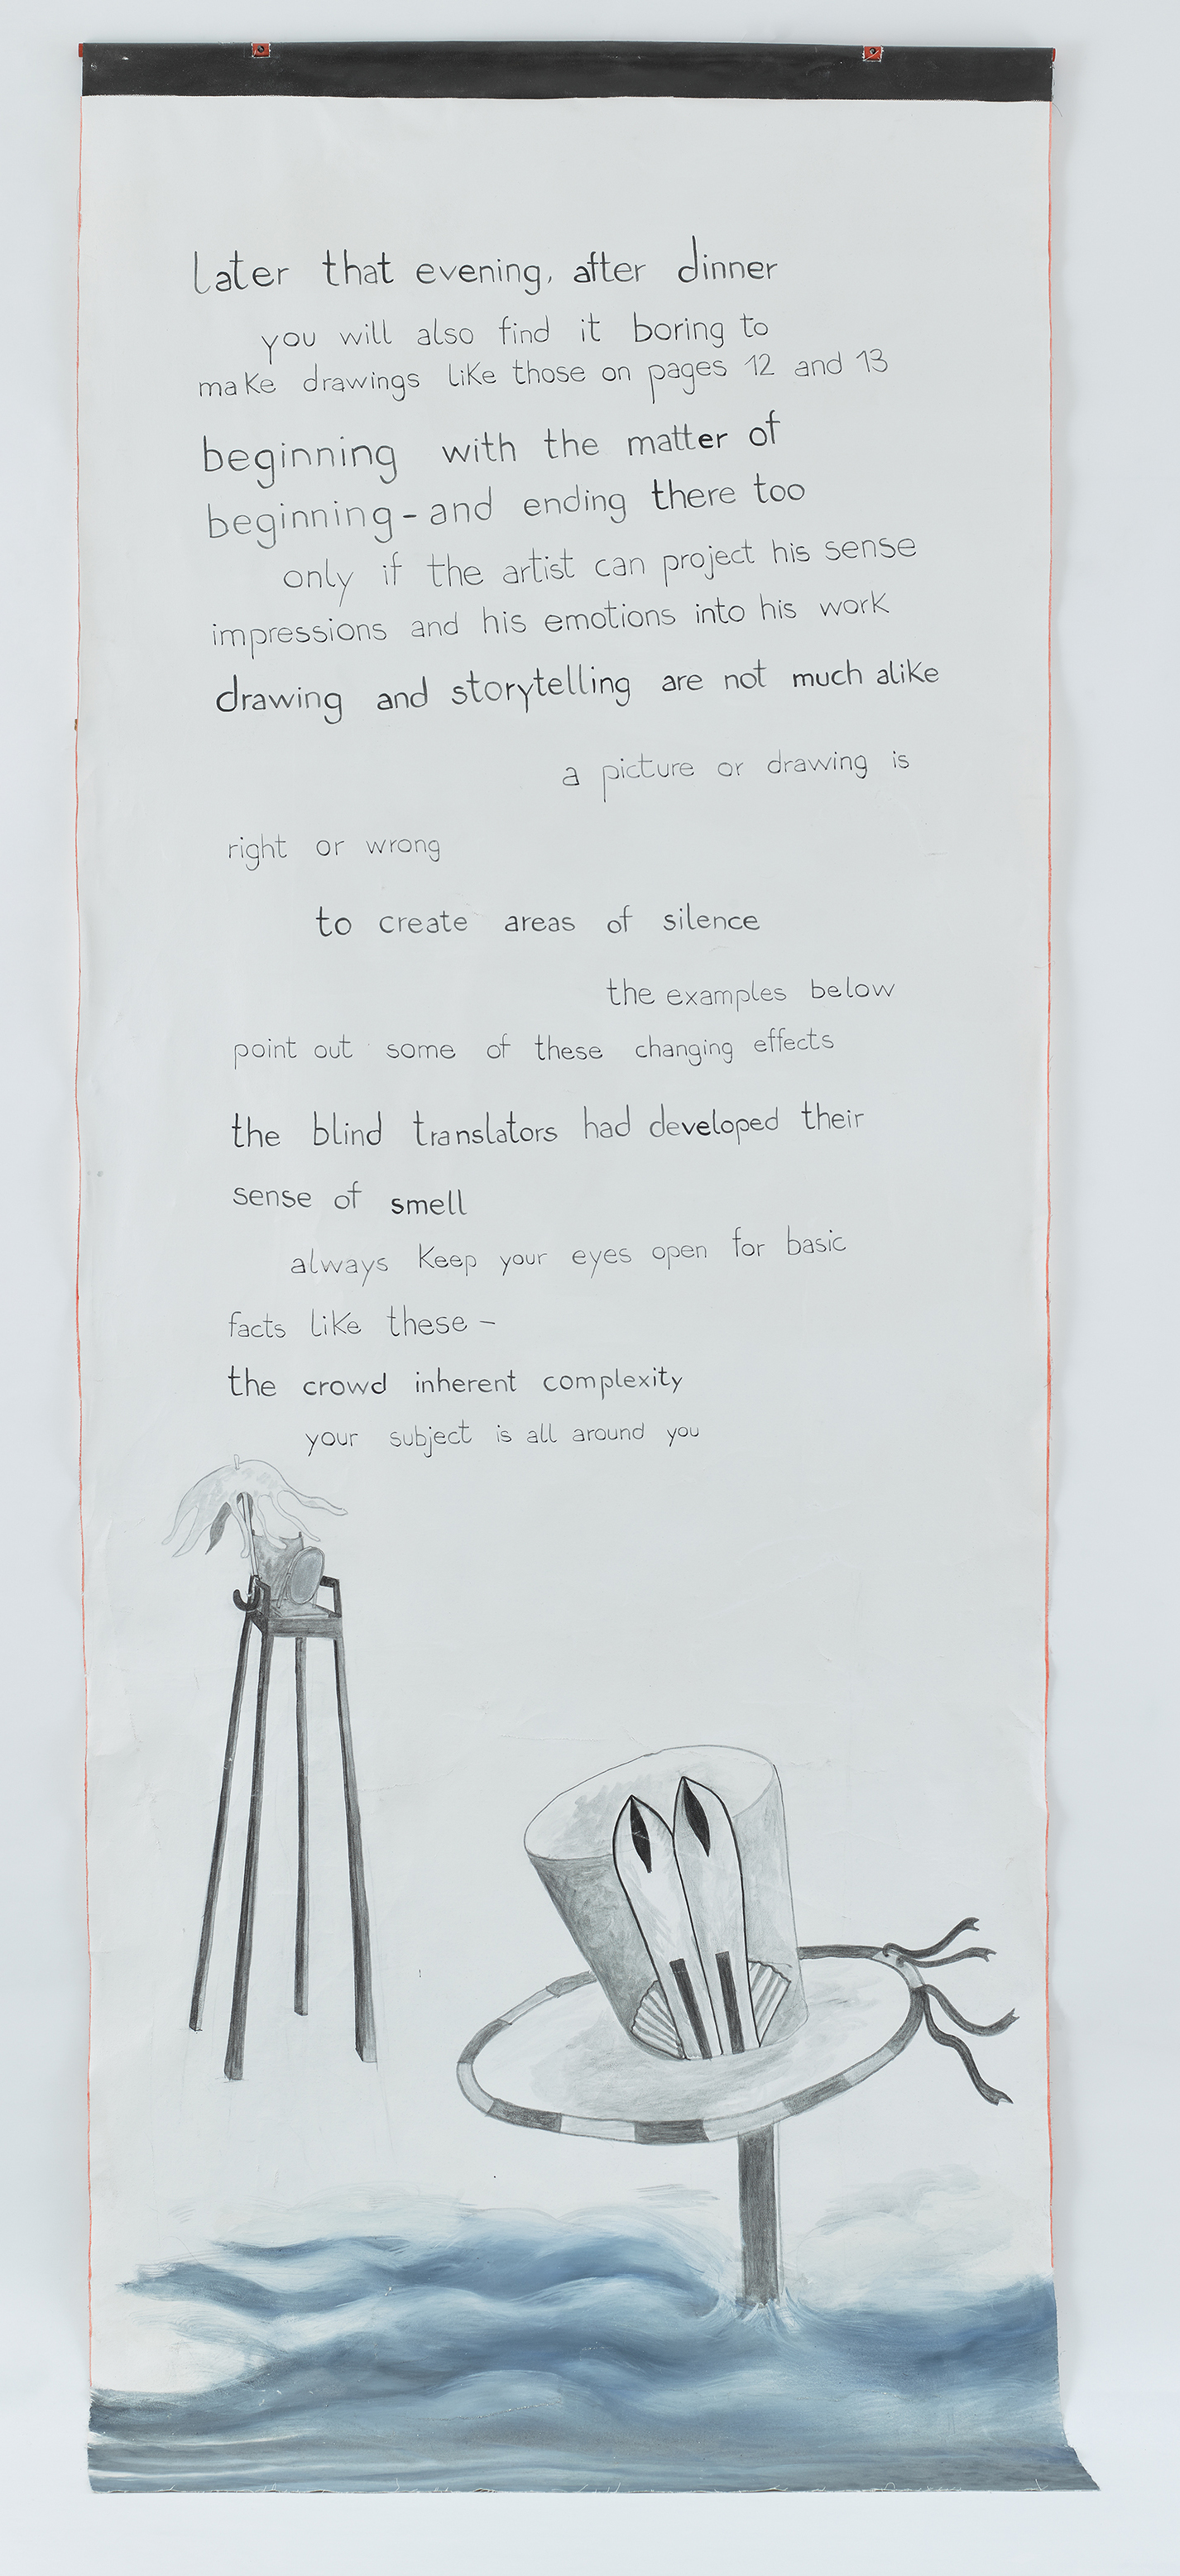 later that evening, after dinner
you will also find it boring to
make drawings like those on pages 12 and 13
beginning with the matter of
beginning - and ending there too
only if the artist can project his sense
impressions and his emotions into his work
drawing and storytelling are not much alike
a picture or drawing is
right or wrong
to create areas of silence
the examples below
point out some of these changing effects
the blind translators had developed their
sense of smell
always keep your eyes open for basic
facts like these -
the crowd inherent complexity
your subject is all around you